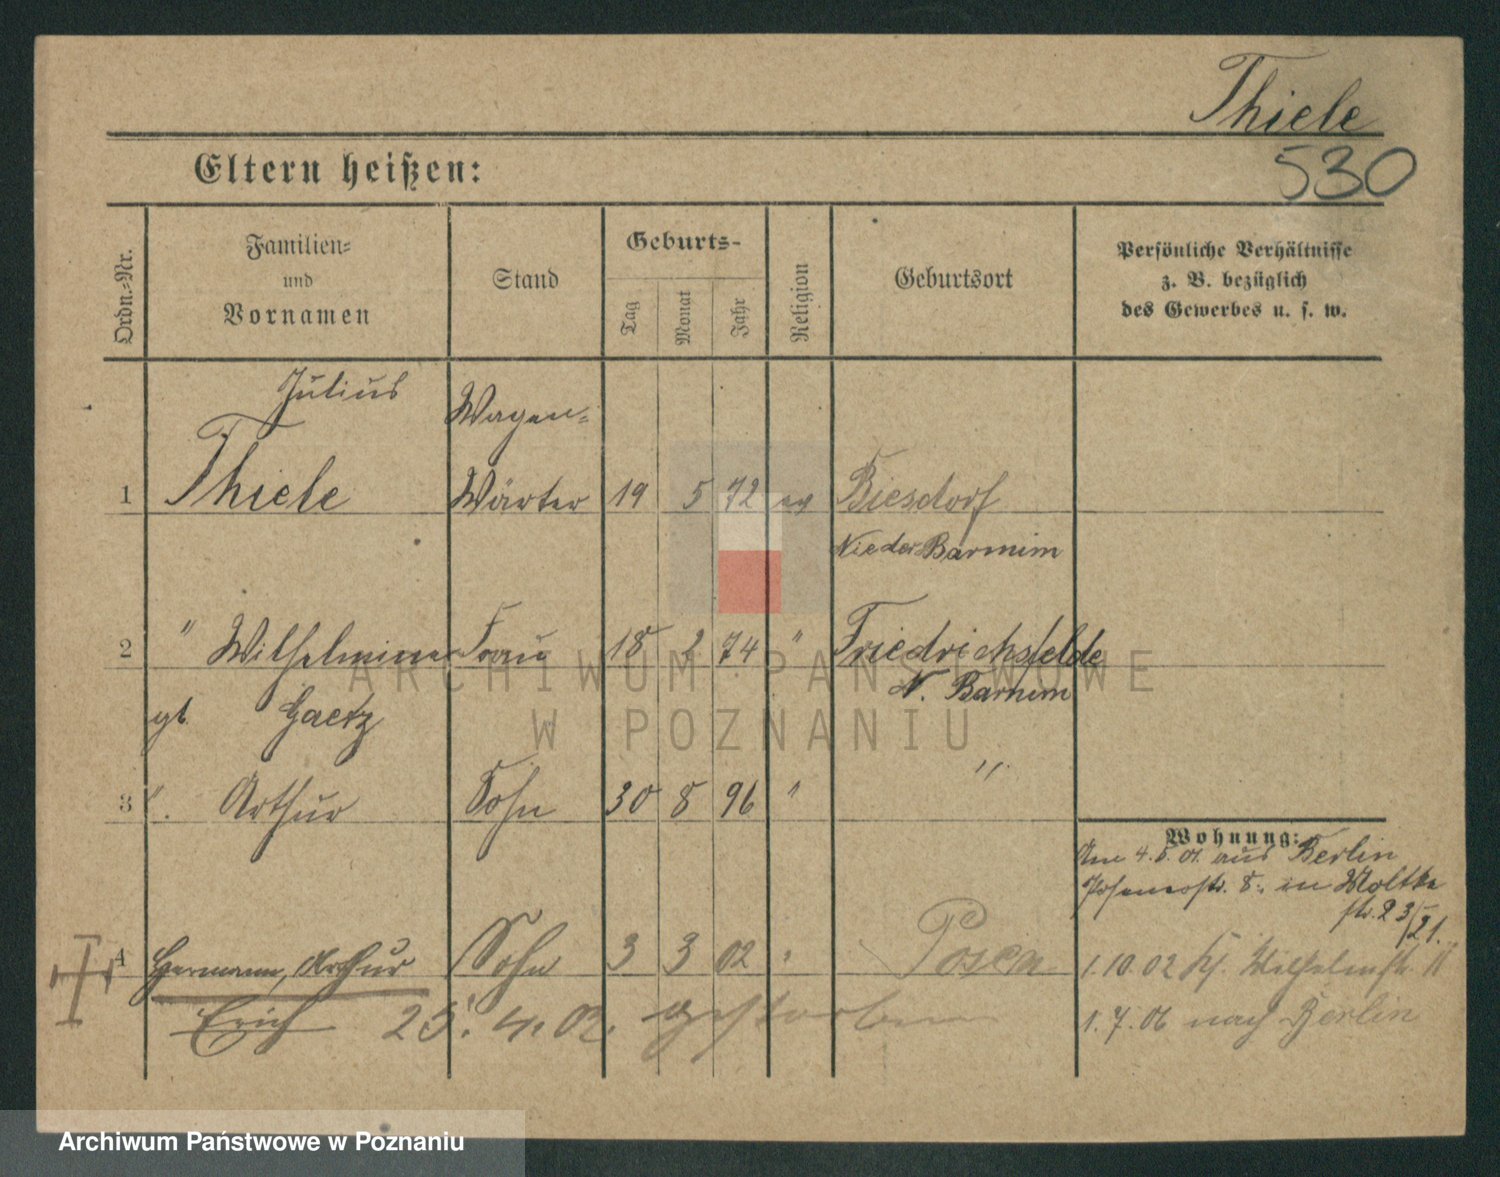 Thiele
530
Eltern heißen:
Ordn.-Nr.
Familien-
und
Vornamen
Stand
Geburts-
Tag
Monat
Jahr
Religion
Geburtsort
Persönliche Verhältnisse
z. B. bezüglich
des Gewerbes u. s. w.
Julius
Wagen-
1 Thiele Wärter 19 5 72 ev Biesdorf
Nieder Barnim
2 " Wilhelmine Frau 18 2 74 " Friedrichsfelde
N. Barnim
gb. Gaetz
"
3 ". Arthur Sohn 30 8 96 "
Wohnung:
Am 4.5.01. aus Berlin
Posenerstr. 8. in Moltke
str. 23/21.
4 Hermann, Arthur Sohn 3 3 02 " Posen
1.10.02 Wilhelmstr. 11
Erich 25.4.02. gestorben
1.7.06 nach Berlin
ARCHIWUM PAŃSTWOWE
W POZNANIU
Archiwum Państwowe w Poznaniu